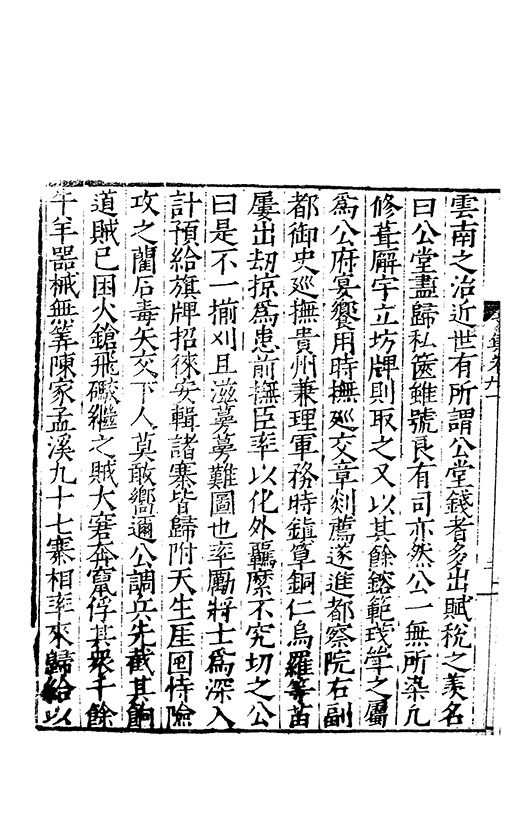 雲南之治近世有所謂公堂錢者多出賦稅之羡名
曰公堂盡歸私篋雖號良有司亦然公一無所染凡
修葺廨宇立坊牌則取之又以其餘鎔範琖斝之屬
爲公府宴饗用時撫廵交章剡薦遂進都察院右副
都御史廵撫貴州兼理軍務時鎮筸銅仁烏羅等苗
屢出刼掠爲患前撫臣率以化外羈縻不究切之公
曰是不一揃刈且滋蔓蔓難圖也率勵將士爲深入
計預給旗牌招徠安輯諸寨皆歸附天生崖囤恃險
攻之藺石毒矢交下人莫敢嚮邇公調兵先截其餉
道賊已困火鎗飛礮繼之賊大窘奔竄俘其衆千餘
牛羊器械無筭陳家孟溪九十七寨相率來歸給以
集卷九十